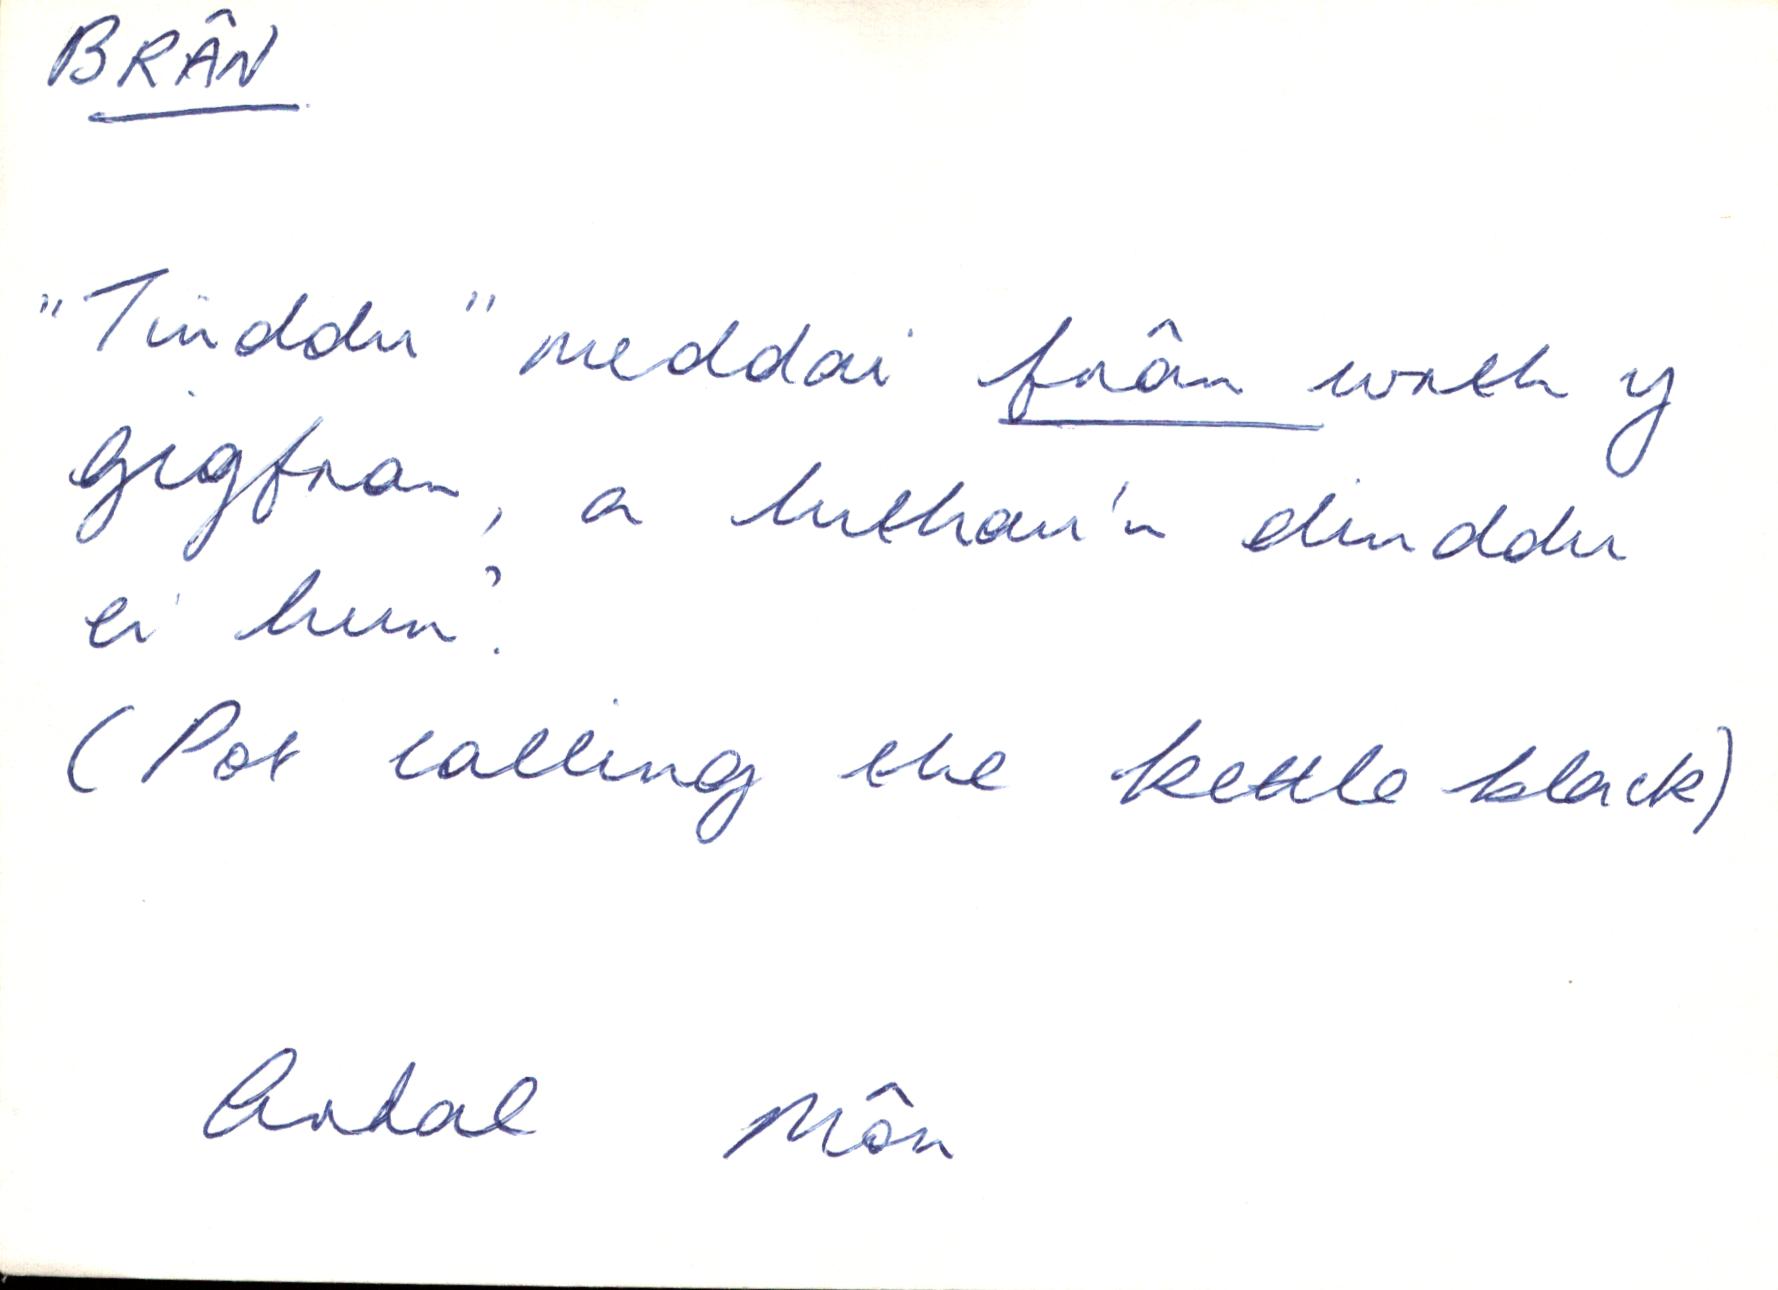 BRÂN
"Tinddu" meddai frân wrth y
gigfran, a hithau'n dinddu
ei hun?
(Pot calling the kettle black)
Ardal Môn